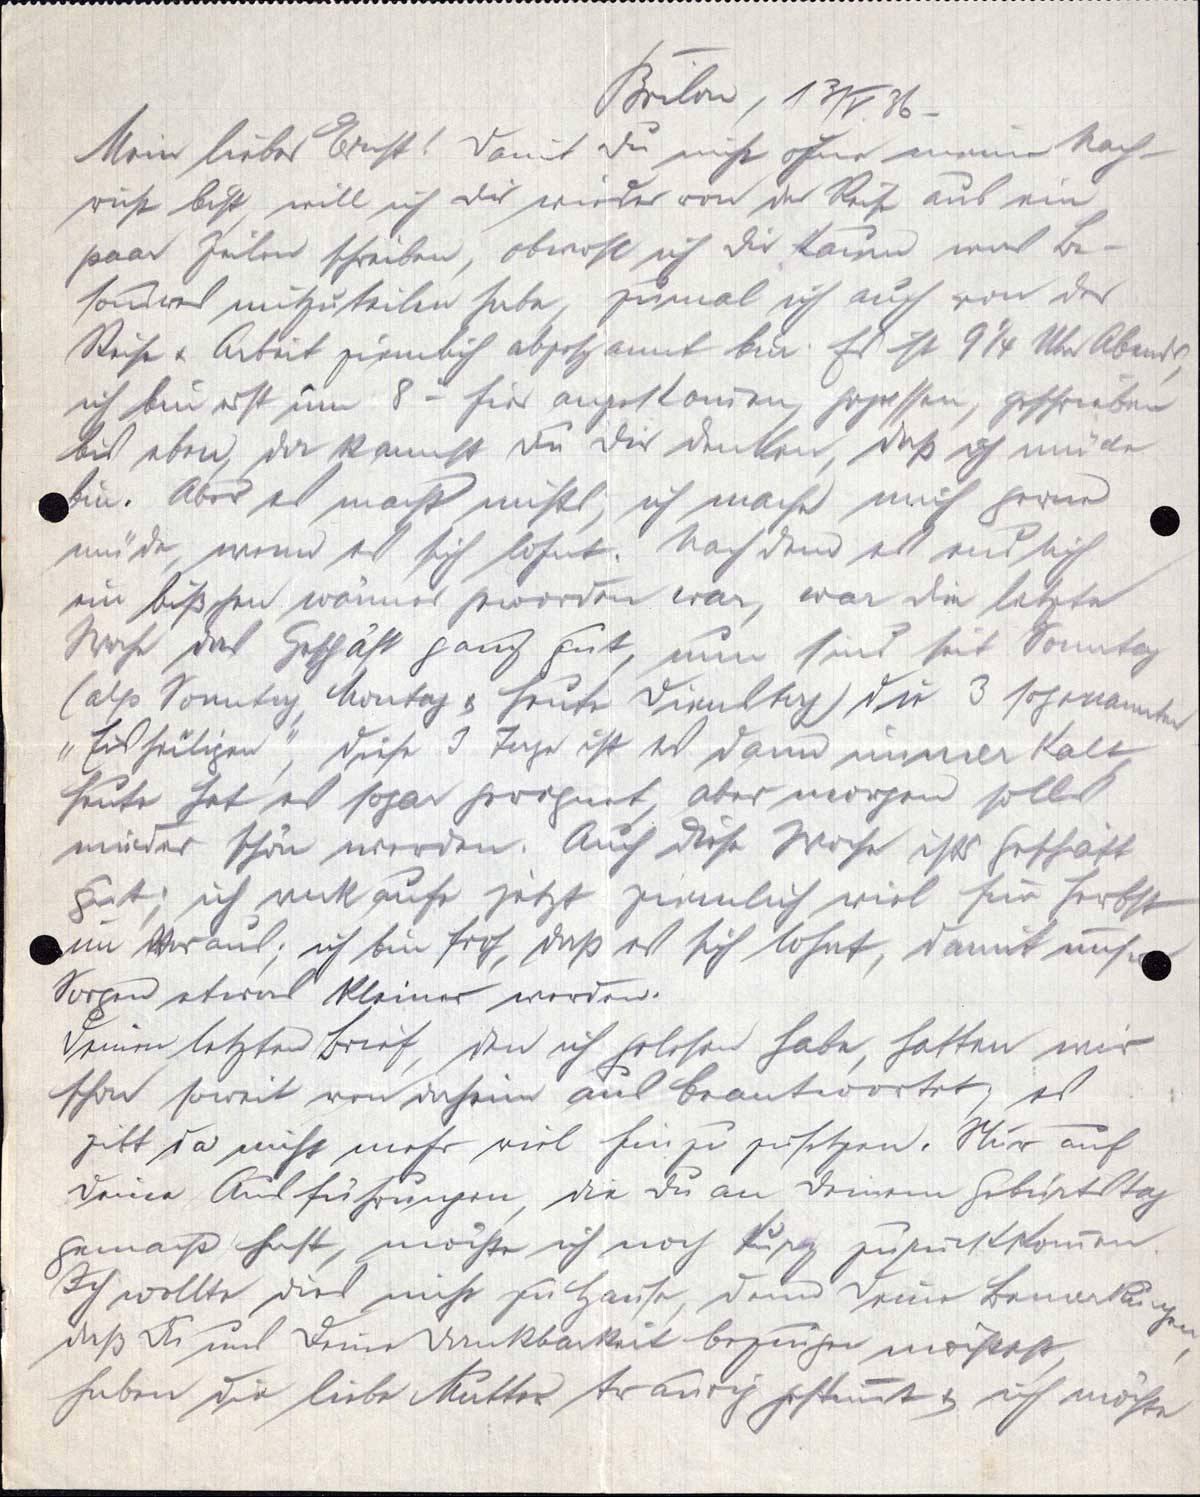 Brilon, 13/V. 36 –
Mein lieber Ernst! Damit Du nicht ohne meine Nach-
richt bist, will ich Dir wieder von der Reise aus ein
paar Zeilen schreiben, obwohl ich Dir kaum was Be-
sonderes mitzuteilen habe, zumal ich auch von der
Reise & Arbeit ziemlich abgespannt bin. Es ist 9 1/4 Uhr Abends,
ich bin erst um 8 – hier angekommen, gegessen, geschrieben
bis eben, da kannst Du Dir denken, daß ich müde
bin. Aber es macht nichts, ich mache mich gerne
müde, wenn es sich lohnt. Nachdem es endlich
ein bißchen wärmer geworden war, war die letzte
Woche das Geschäft ganz gut, nun sind seit Sonntag
(also Sonntag, Montag & heute Dienstag) die 3 sogenannten
„Eisheiligen", diese 3 Tage ist es dann immer kalt,
heute hat es sogar geregnet, aber morgen solls
wieder schön werden. Auch diese Woche ists Geschäft
gut; ich verkaufe jetzt ziemlich viel für Herbst
im Voraus; ich bin froh, daß es sich lohnt, damit unsre
Sorgen etwas kleiner werden.
Deinen letzten Brief, den ich gelesen habe, hatten wir
schon soweit von daheim aus beantwortet, es
gibt da nicht mehr viel hinzu zusetzen. Nur auf
Deine Ausführungen, die Du an Deinem Geburtstag
gemacht hast, möchte ich noch kurz zurückkommen.
Ich wollte dies nicht zu Hause, denn Deine Bemerkungen,
daß Du uns Deine Dankbarkeit bezeugen möchtest,
haben die liebe Mutter traurig gestimmt & ich möchte